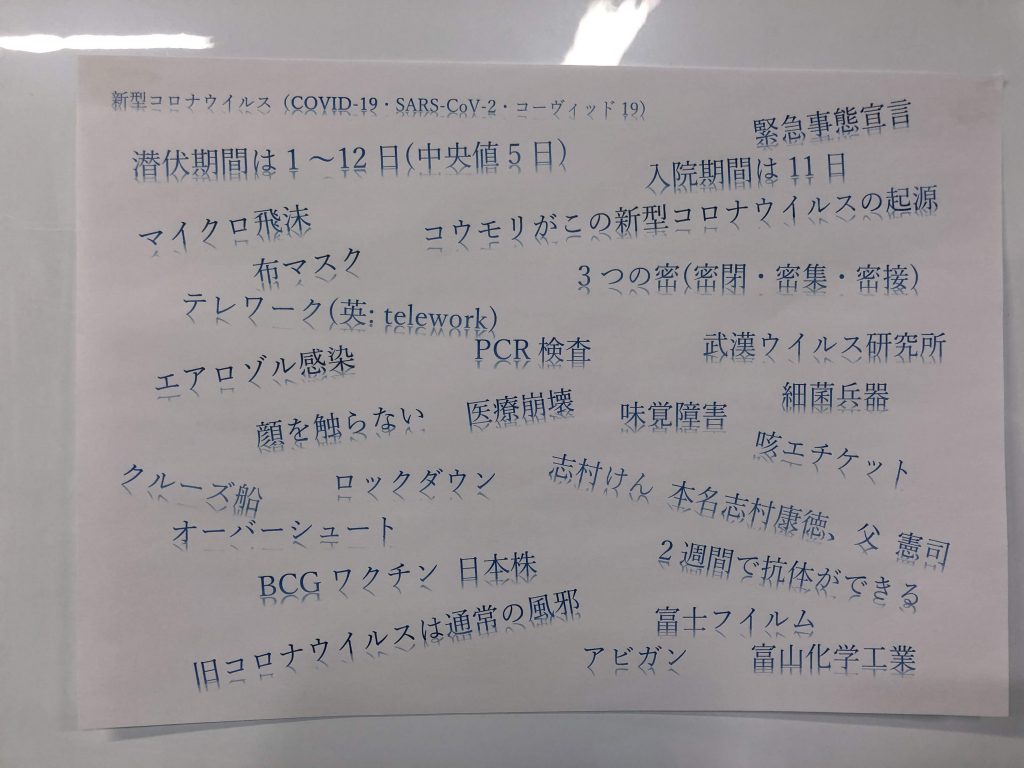 新型コロナウイルス（COVID-19・SARS-CoV-2・コーヴィッド19）
緊急事態宣言
潜伏期間は1～12日(中央値5日)
入院期間は11日
マイクロ飛沫
コウモリがこの新型コロナウイルスの起源
布マスク
3つの密(密閉・密集・密接)
テレワーク(英: telework)
PCR検査
武漢ウイルス研究所
エアロゾル感染
細菌兵器
顔を触らない
医療崩壊
味覚障害
咳エチケット
クルーズ船
ロックダウン
志村けん 本名志村康徳、父 憲司
オーバーシュート
2週間で抗体ができる
BCGワクチン 日本株
富士フイルム
旧コロナウイルスは通常の風邪
アビガン
富山化学工業